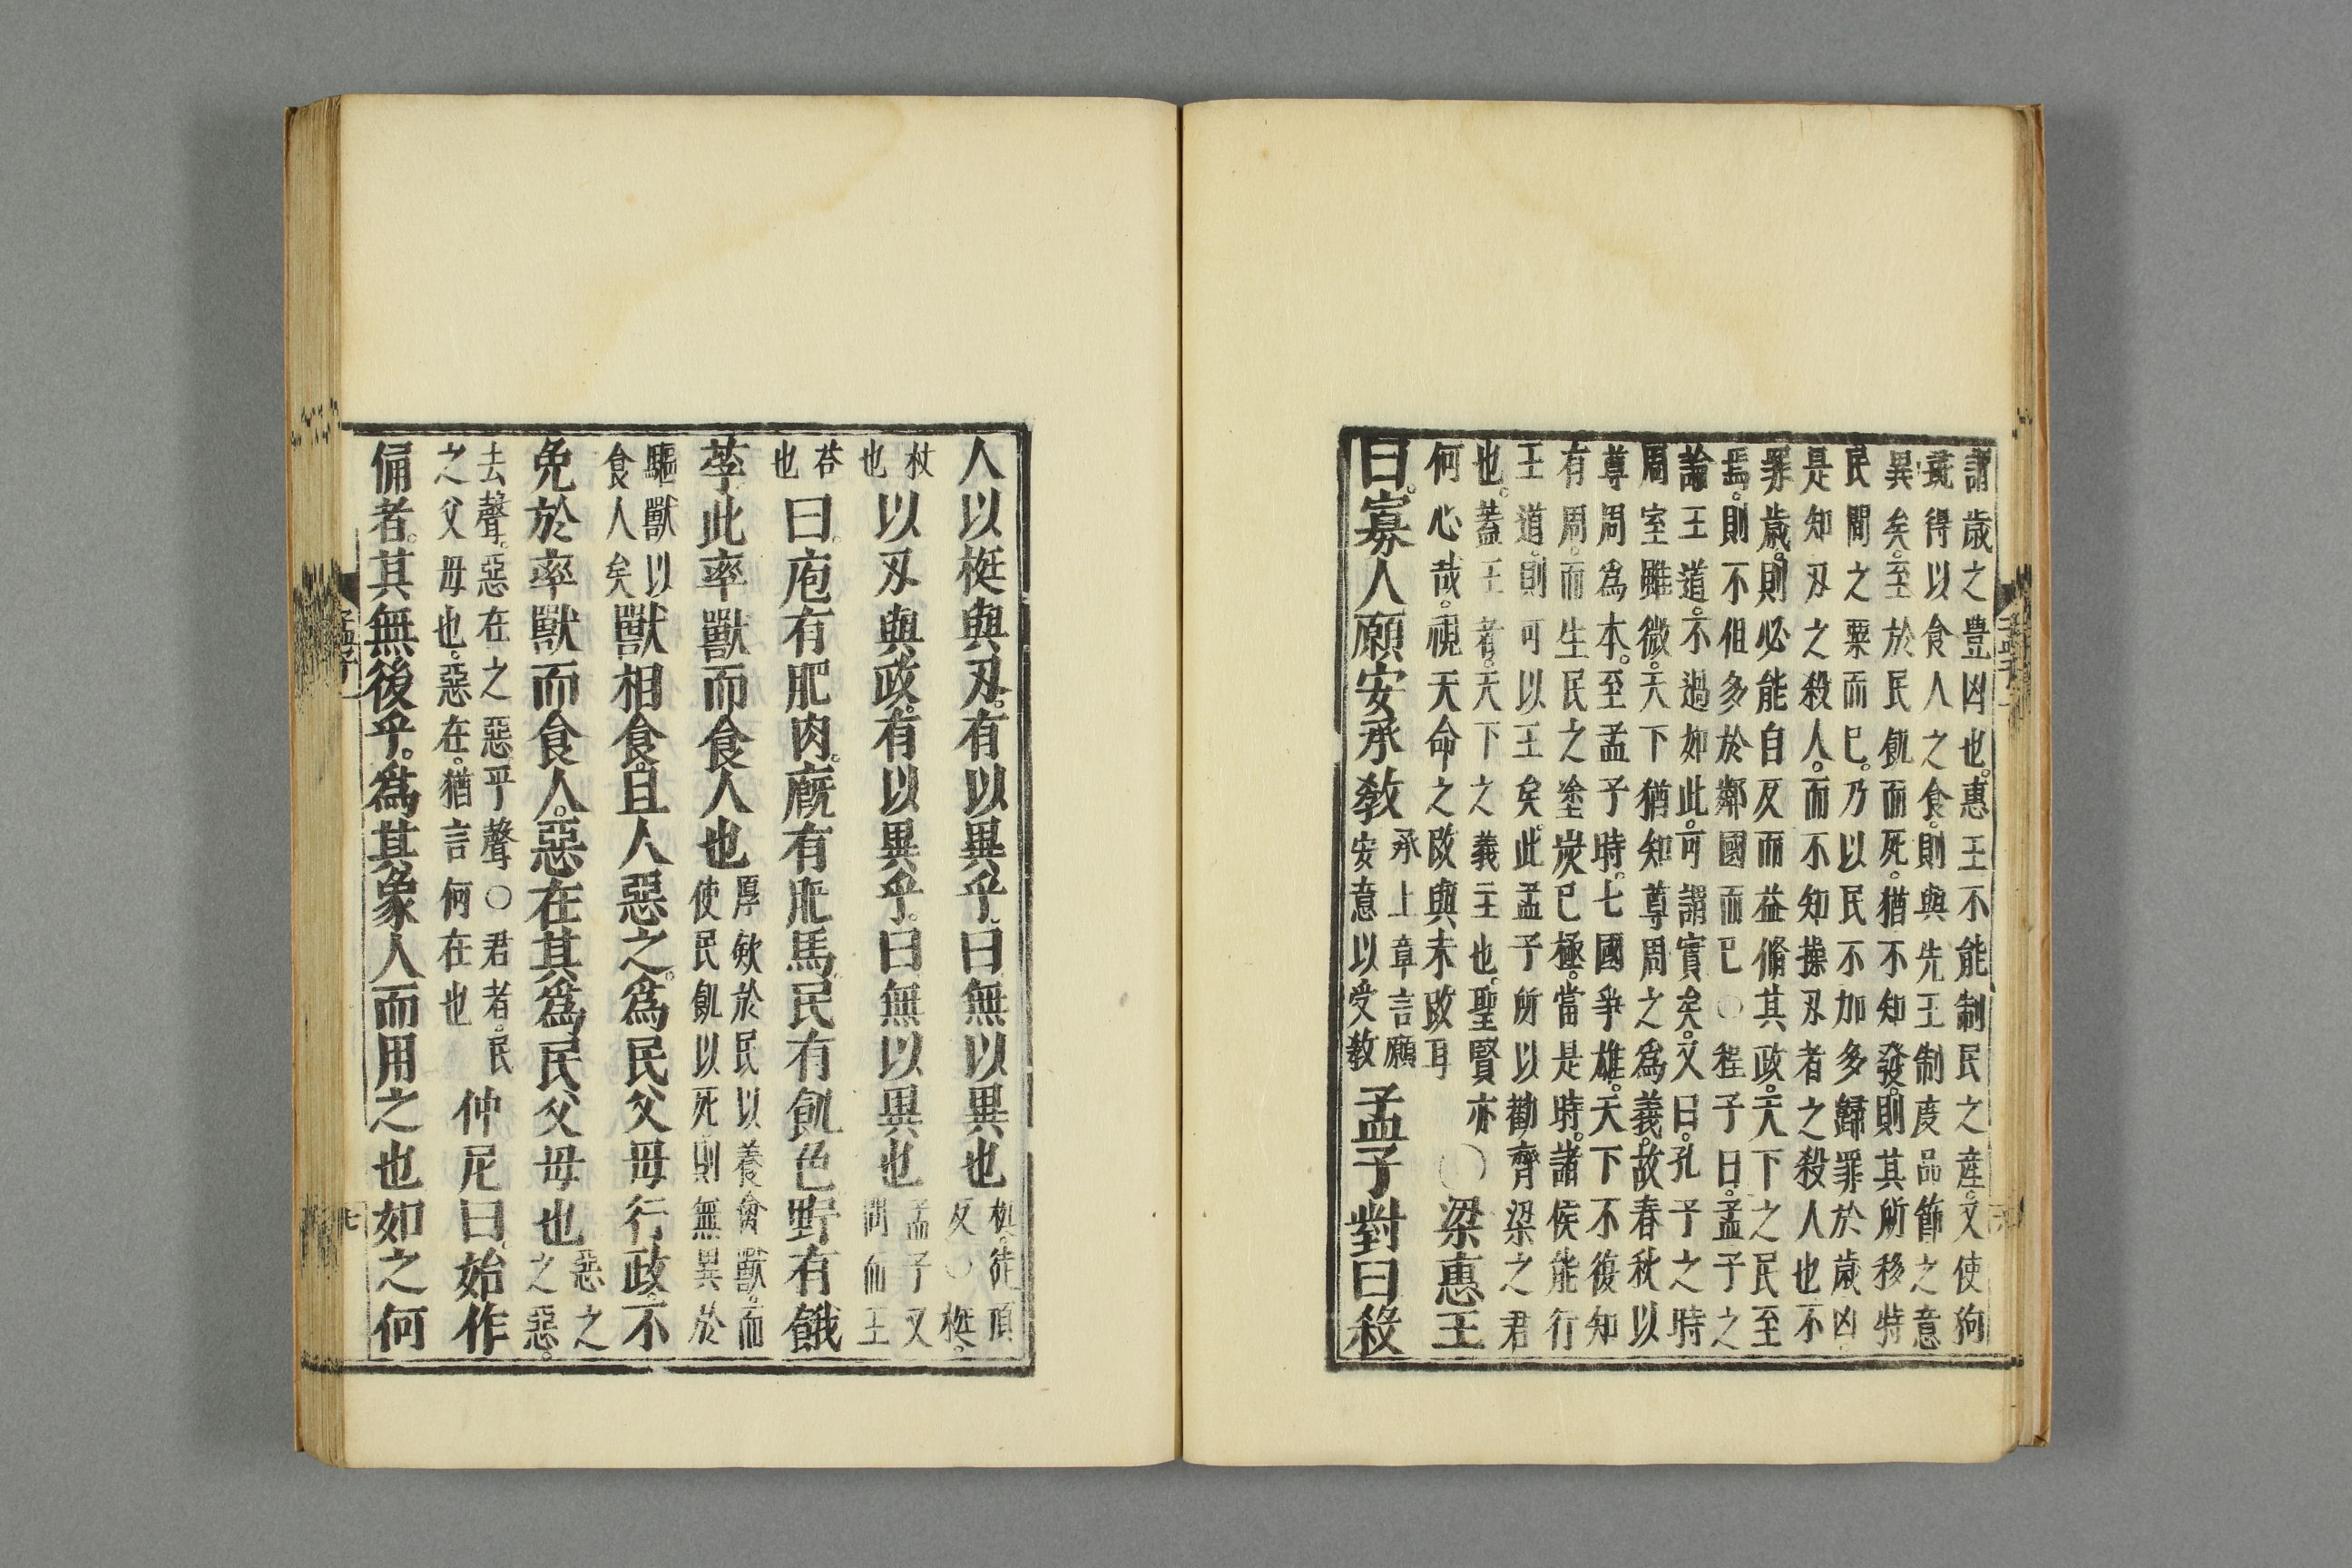 謂歲之豊凶也。惠王不能制民之産。又使狗
彘得以食人之食。則與先王制度品節之意
異矣。至於民飢而死。猶不知發。則其所移特
民間之粟而已。乃以民不加多歸罪於歲凶
是知刃之殺人。而不知操刃者之殺人也不
罪歲。則必能自反而益脩其政。天下之民至
焉。則不但多於鄰國而已○程子曰。孟子之
論王道。不過如此。可謂實矣。又曰。孔子之時
周室雖微。天下猶知尊周之爲義。故春秋以
尊周爲本。至孟子時。七國爭雄。天下不復知
有周。而生民之塗炭已極。當是時。諸侯能行
王道。則可以王矣。此孟子所以勸齊梁之君
也。蓋王者。天下之義主也。聖賢亦
何心哉。視天命之改與未改耳
○梁惠王
曰。寡人願安承教
承上章言願
安意以受教
孟子對曰殺
人以梃與刃。有以異乎。曰無以異也
梃。徒頂
反○梃。
杖
也
以刃與政。有以異乎。曰無以異也
孟子又
問而王
荅
也
曰。庖有肥肉。廐有肥馬。民有飢色野有餓
莩此率獸而食人也
厚斂於民以養禽獸。而
使民飢以死則無異於
驅獸以
食人矣
獸相食。且人惡之。爲民父母行政。不
免於率獸而食人。惡在其爲民父母也
惡之
之惡。
去聲。惡在之惡平聲○君者。民
之父母也。惡在。猶言何在也
仲尼曰。始作
俑者。其無後乎。爲其象人而用之也如之何
孟子一
七